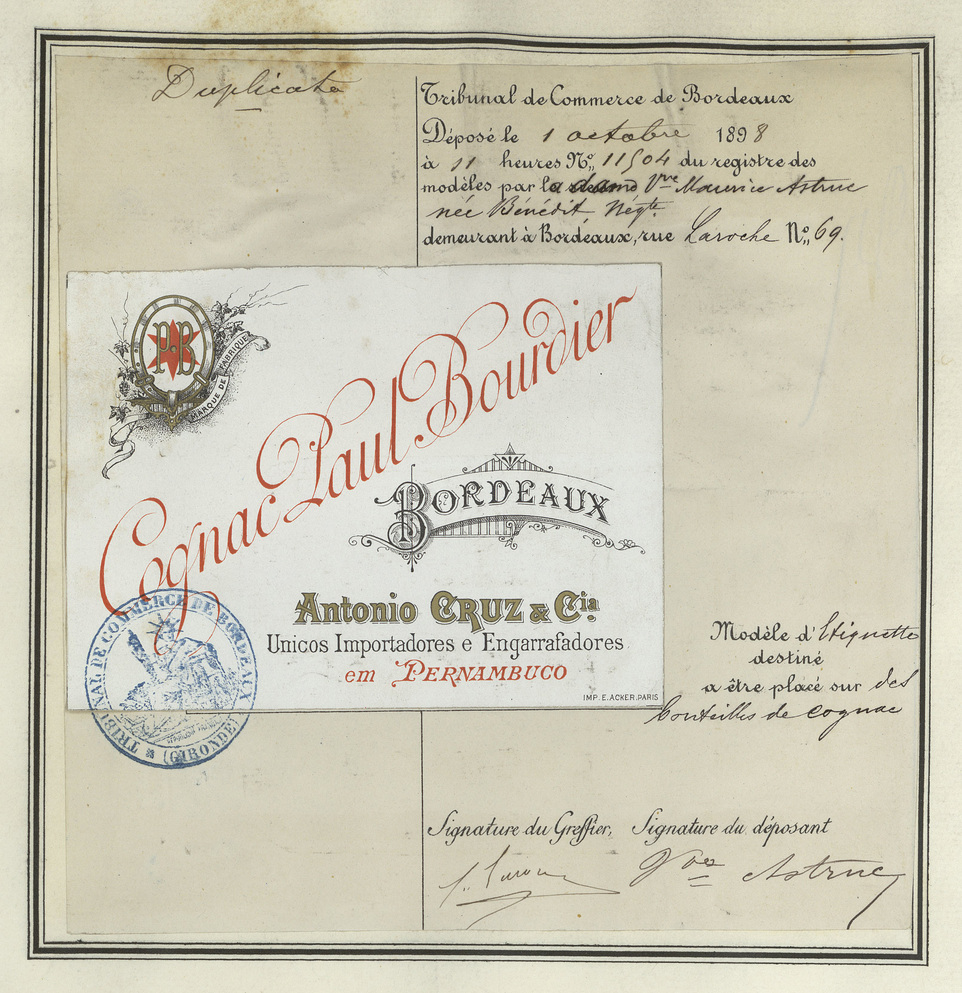 Duplicata
Tribunal de Commerce de Bordeaux
Déposé le 1 octobre 1898
à 11 heures No, 11504 du registre des
modèles par la dame Vve Maurice Astruc
née Bénédit Négte.
demeurant à Bordeaux, rue Laroche No, 69.
P.B
MARQUE DE FABRIQUE
Cognac Paul Bourdier
BORDEAUX
Antonio CRUZ & Cia.
Unicos Importadores e Engarrafadores
em PERNAMBUCO
IMP. E. ACKER. PARIS
TRIBUNAL DE COMMERCE DE BORDEAUX
(GIRONDE)
Modèle d'Etiquette
destiné
a être placé sur des
bouteilles de cognac
Signature du Greffier, Signature du déposant
Vve Astruc